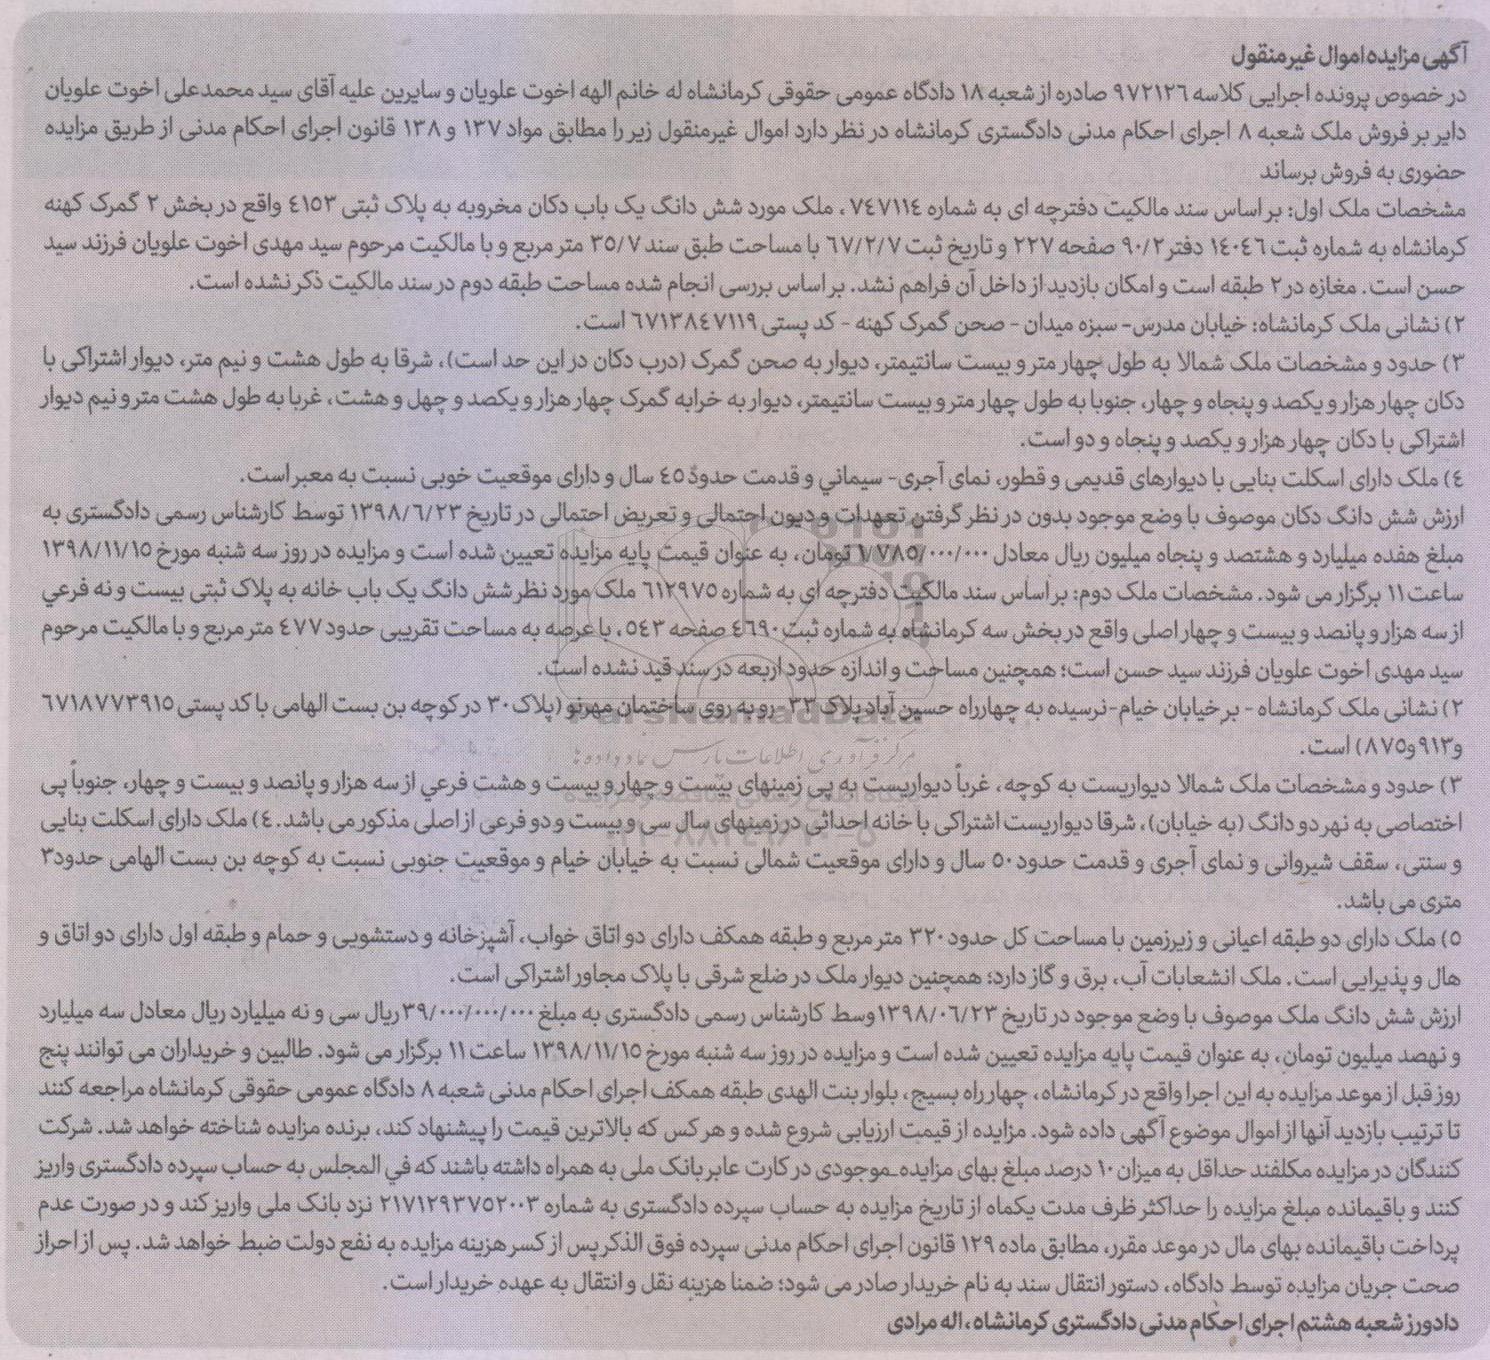 آگهی مزایده اموال غیرمنقول
در خصوص پرونده اجرایی کلاسه ۹۷۲۱۲۶ صادره از شعبه ۱۸ دادگاه عمومی حقوقی کرمانشاه له خانم الهه اخوت علویان و سایرین علیه آقای سید محمدعلی اخوت علویان
دایر بر فروش ملک شعبه ۸ اجرای احکام مدنی دادگستری کرمانشاه در نظر دارد اموال غیرمنقول زیر را مطابق مواد ۱۳۷ و ۱۳۸ قانون اجرای احکام مدنی از طریق مزایده
حضوری به فروش برساند
مشخصات ملک اول: بر اساس سند مالکیت دفترچه ای به شماره ۷۴۷۱۱۴ ، ملک مورد شش دانگ یک باب دکان مخروبه به پلاک ثبتی ۴۱۵۳ واقع در بخش ۲ گمرک کهنه
کرمانشاه به شماره ثبت ۱۴۰۴۶ دفتر ۹۰/۲ صفحه ۲۲۷ و تاریخ ثبت ۶۷/۲/۷ با مساحت طبق سند ۳۵/۷ متر مربع و با مالکیت مرحوم سید مهدی اخوت علویان فرزند سید
حسن است. مغازه در ۲ طبقه است و امکان بازدید از داخل آن فراهم نشد. بر اساس بررسی انجام شده مساحت طبقه دوم در سند مالکیت ذکر نشده است.
۲) نشانی ملک کرمانشاه: خیابان مدرس- سبزه میدان - صحن گمرک کهنه - کد پستی ۶۷۱۳۸۴۷۱۱۹ است.
۳) حدود و مشخصات ملک شمالا به طول چهار متر و بیست سانتیمتر، دیوار به صحن گمرک (درب دکان در این حد است)، شرقا به طول هشت و نیم متر، دیوار اشتراکی با
دکان چهار هزار و یکصد و پنجاه و چهار، جنوبا به طول چهار متر و بیست سانتیمتر، دیوار به خرابه گمرک چهار هزار و یکصد و چهل و هشت، غربا به طول هشت متر و نیم دیوار
اشتراکی با دکان چهار هزار و یکصد و پنجاه و دو است.
۴) ملک دارای اسکلت بنایی با دیوارهای قدیمی و قطور، نمای آجری- سیماني و قدمت حدود ۴۵ سال و دارای موقعیت خوبی نسبت به معبر است.
ارزش شش دانگ دکان موصوف با وضع موجود بدون در نظر گرفتن تعهدات و دیون احتمالی و تعریض احتمالی در تاریخ ۱۳۹۸/۶/۲۳ توسط کارشناس رسمی دادگستری به
مبلغ هفده میلیارد و هشتصد و پنجاه میلیون ریال معادل ۱/۷۸۵/۰۰۰/۰۰۰ تومان، به عنوان قیمت پایه مزایده تعیین شده است و مزایده در روز سه شنبه مورخ ۱۳۹۸/۱۱/۱۵
ساعت ۱۱ برگزار می شود. مشخصات ملک دوم: بر اساس سند مالکیت دفترچه ای به شماره ۶۱۲۹۷۵ ملک مورد نظر شش دانگ یک باب خانه به پلاک ثبتی بیست و نه فرعي
از سه هزار و پانصد و بیست و چهار اصلی واقع در بخش سه کرمانشاه به شماره ثبت ۴۶۹۰ صفحه ۵۴۳، با عرصه به مساحت تقریبی حدود ۴۷۷ متر مربع و با مالکیت مرحوم
سید مهدی اخوت علویان فرزند سید حسن است؛ همچنین مساحت و اندازه حدود اربعه در سند قید نشده است.
۲) نشانی ملک کرمانشاه - بر خیابان خیام-نرسیده به چهارراه حسین آباد پلاک ۳۳- رو به روی ساختمان مهرنو (پلاک ۳۰ در کوچه بن بست الهامی با کد پستی ۶۷۱۸۷۷۳۹۱۵
و۹۱۳و۸۷۵) است.
۳) حدود و مشخصات ملک شمالا دیواریست به کوچه، غرباً دیواریست به پی زمینهای بیست و چهار و بیست و هشت فرعي از سه هزار و پانصد و بیست و چهار، جنوباً پی
اختصاصی به نهر دو دانگ (به خیابان)، شرقا دیواریست اشتراکی با خانه احداثی در زمینهای سال سی و بیست و دو فرعی از اصلی مذکور می باشد. ۴) ملک دارای اسکلت بنایی
و سنتی، سقف شیروانی و نمای آجری و قدمت حدود ۵۰ سال و دارای موقعیت شمالی نسبت به خیابان خیام و موقعیت جنوبی نسبت به کوچه بن بست الهامی حدود ۳
متری می باشد.
۵) ملک دارای دو طبقه اعیانی و زیرزمین با مساحت کل حدود ۳۲۰ متر مربع و طبقه همکف دارای دو اتاق خواب، آشپزخانه و دستشویی و حمام و طبقه اول دارای دو اتاق و
هال و پذیرایی است. ملک انشعابات آب، برق و گاز دارد؛ همچنین دیوار ملک در ضلع شرقی با پلاک مجاور اشتراکی است.
ارزش شش دانگ ملک موصوف با وضع موجود در تاریخ ۱۳۹۸/۰۶/۲۳وسط کارشناس رسمی دادگستری به مبلغ ۳۹/۰۰۰/۰۰۰/۰۰۰ریال سی و نه میلیارد ریال معادل سه میلیارد
و نهصد میلیون تومان، به عنوان قیمت پایه مزایده تعیین شده است و مزایده در روز سه شنبه مورخ ۱۳۹۸/۱۱/۱۵ ساعت ۱۱ برگزار می شود. طالبین و خریداران می توانند پنج
روز قبل از موعد مزایده به این اجرا واقع در کرمانشاه، چهار راه بسیج، بلوار بنت الهدی طبقه همکف اجرای احکام مدنی شعبه ۸ دادگاه عمومی حقوقی کرمانشاه مراجعه کنند
تا ترتیب بازدید آنها از اموال موضوع آگهی داده شود. مزایده از قیمت ارزیابی شروع شده و هر کس که بالاترین قیمت را پیشنهاد کند، برنده مزایده شناخته خواهد شد. شرکت
کنندگان در مزایده مکلفند حداقل به میزان ۱۰ درصد مبلغ بهای مزایده-موجودی در کارت عابر بانک ملی به همراه داشته باشند که في المجلس به حساب سپرده دادگستری واریز
کنند و باقیمانده مبلغ مزایده را حداکثر ظرف مدت یکماه از تاریخ مزایده به حساب سپرده دادگستری به شماره ۲۱۷۱۲۹۳۷۵۲۰۰۳ نزد بانک ملی واریز کند و در صورت عدم
پرداخت باقیمانده بهای مال در موعد مقرر، مطابق ماده ۱۲۹ قانون اجرای احکام مدنی سپرده فوق الذکر پس از کسر هزینه مزایده به نفع دولت ضبط خواهد شد. پس از احراز
صحت جریان مزایده توسط دادگاه، دستور انتقال سند به نام خریدار صادر می شود؛ ضمنا هزینه نقل و انتقال به عهده خریدار است.
دادورز شعبه هشتم اجرای احکام مدنی دادگستری کرمانشاه، اله مرادی
ParsNamadData
مرکز فرآوری اطلاعات پارس نماد داده ها